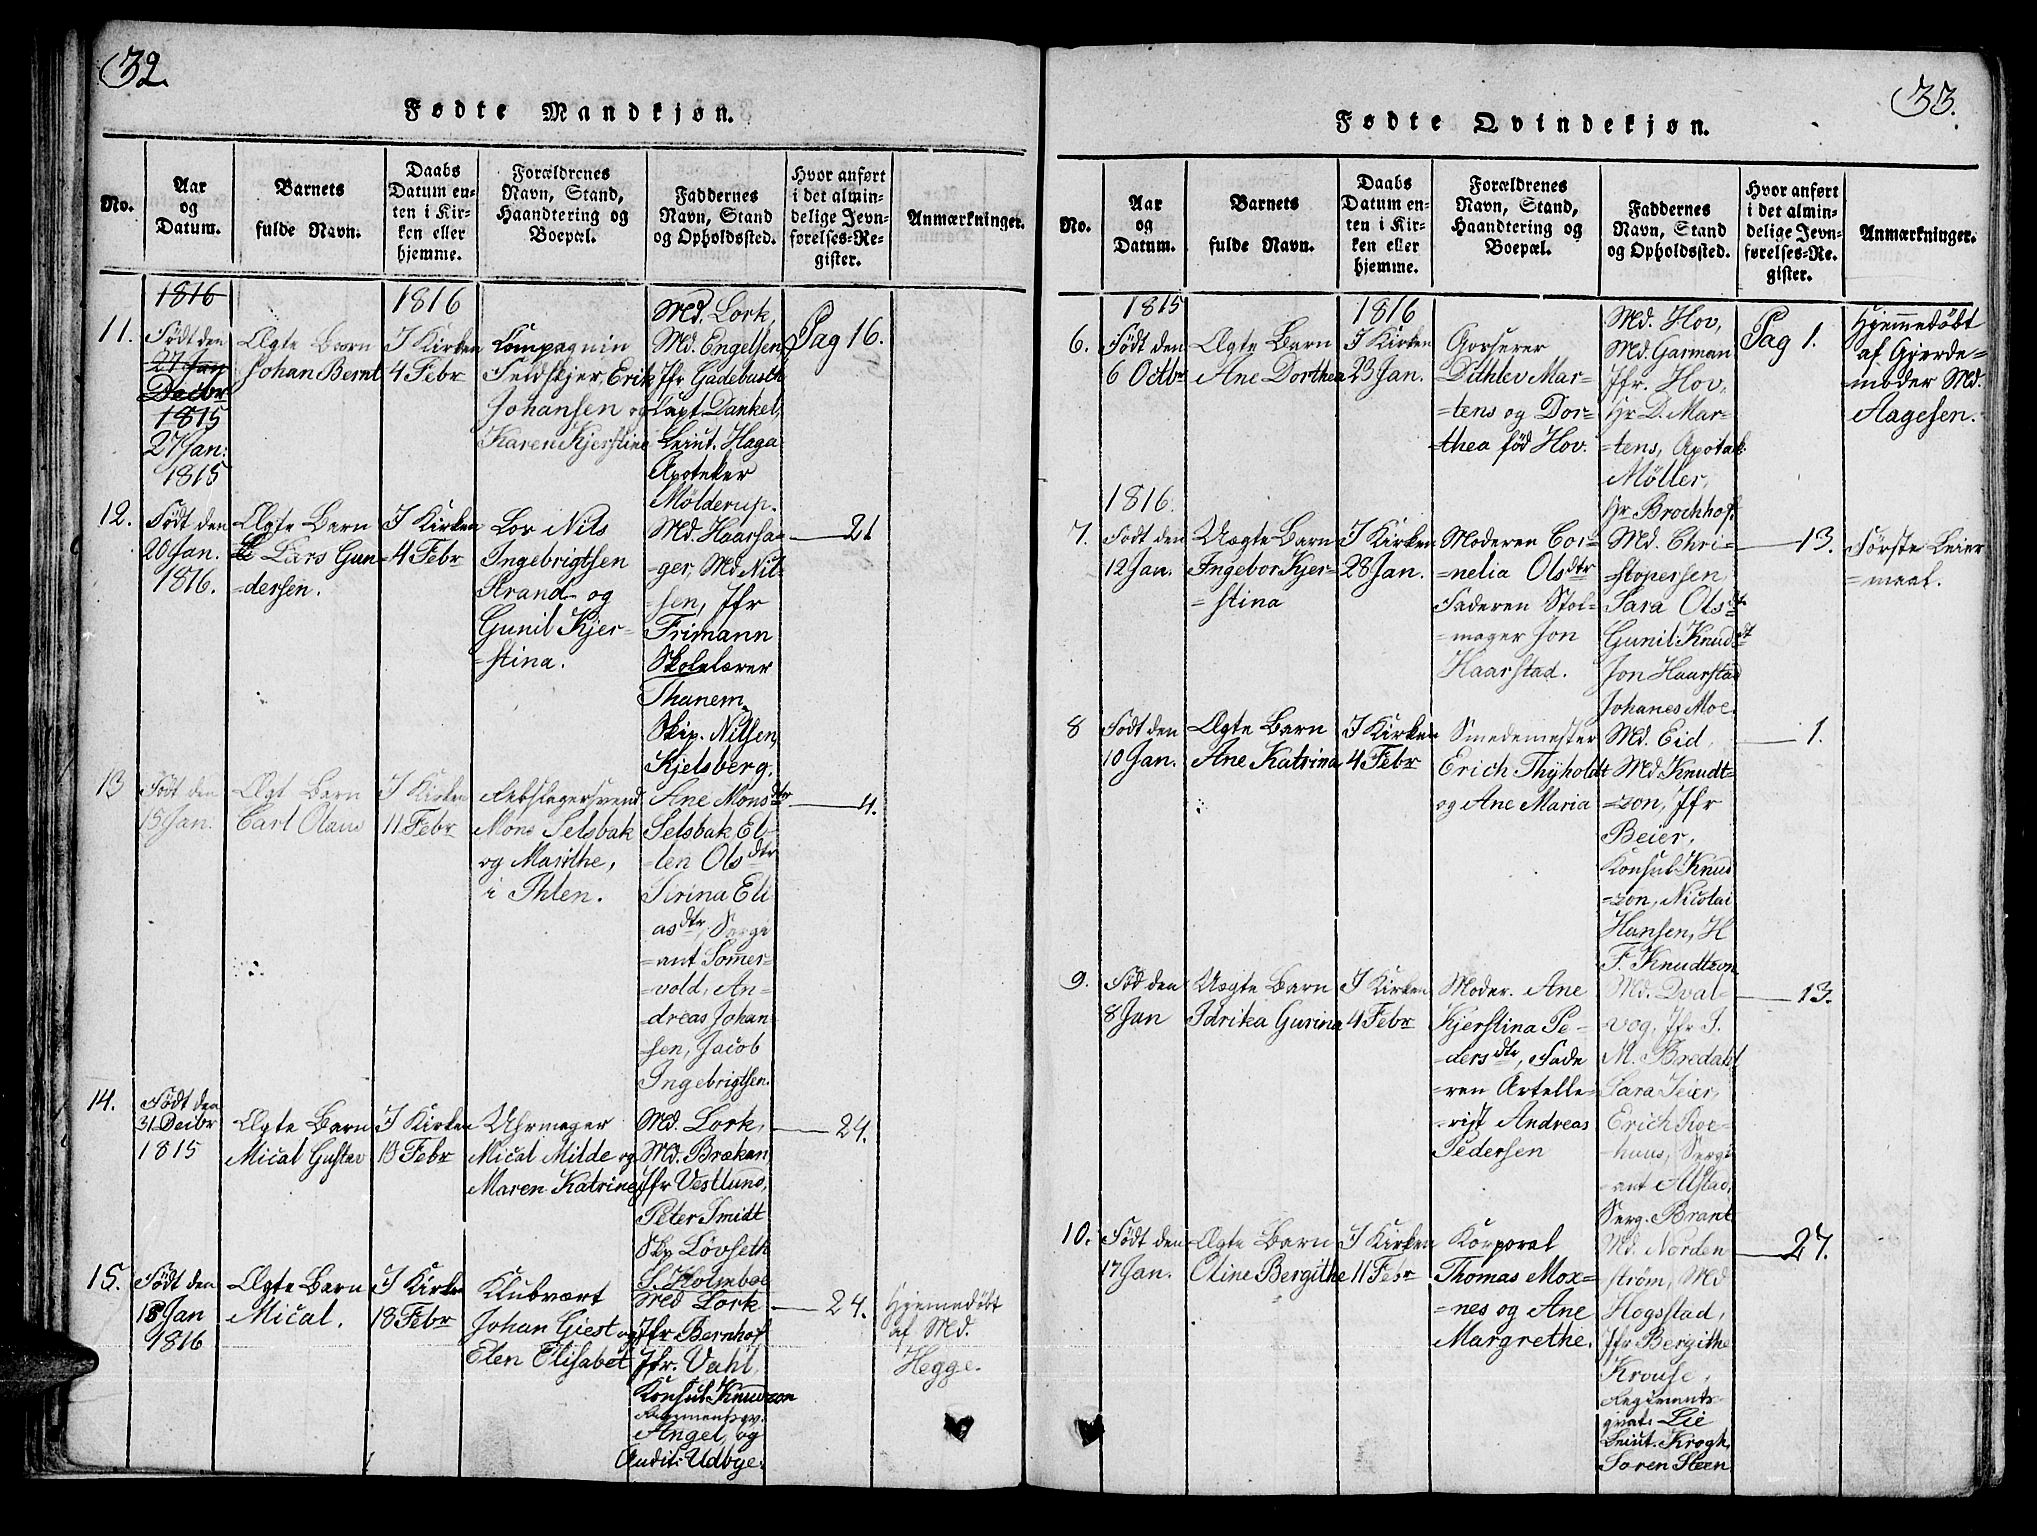 32.
Fødte Mandkjøn.
No.
Aar
og
Datum.
Barnets
fulde Navn.
Daabs
Datum en-
ten i Kir-
ken eller
hjemme.
Forældrenes
Navn, Stand,
Haandtering og
Boepæl.
Faddernes
Navn, Stand
og Opholdssted.
Hvor anført
i det almin-
delige Jevn-
førelses-Re-
gister.
Anmærkninger.
11.
1816
Født den
27 Jan
Decbr
1815
27 Jan:
1815
Ægte Barn
Johan Bernt
1816
I Kirken
4 Febr
Compagnin
Feldskjer, Erik
Johansen og
Karen Kjerstine
Md. Lork,
Md. Engelsen,
Jfr Gadebusch
Capt. Dankel,
Leiut. Haga
Apoteker
Mølderup.
Pag 16.
12.
Født den
20 Jan.
1816.
Ægte Barn
Lars Gun-
dersen.
I Kirken
4 Febr
Lor Nils
Ingebrigtsen
Strand og
Gunil Kjer-
=stina.
Md. Haarsa-
-ger, Md Nil-
=sen, Jfr
Frimann
Skolelærer
Thanem,
Skip. Nilsen,
Kjelsberg.
21
13
Født den
15 Jan.
Ægt Barn
Carl Olaus
I Kirken
11 Febr
Rebslagersvend
Mons Selsbak
og Marithe,
i Ihlen.
Ane Monsdtr
Selsbak, El-
-len Olsdtr
Sirina Eli
asdtr, Sergi
=ant Somer-
=vold, An-
=dreas Johan-
sen, Jacob
Ingebrigtsen.
4.
14.
Født den
31 Decbr
1815
Ægte Barn
Mical Gustav
I Kirken
13 Febr
Uhrmager
Mical Milde og
Maren Katrine
Md. Lork,
Md. Brækan,
Jfr Vestlund,
Peter Smidt
Skp Løvseth
S. Holmboe
24.
15.
Født den
15 Jan
1816
Ægte Barn
Mical.
I Kirke
18 Febr
Klubvært
Johan Giest og
Elen Elisabet
Md Lork
Jfr Bernhof
Jfr. Vahl,
Konsul Knudzon
Angel, og
Audit: Udbye.
24.
Hjemedøbt
af Md.
Hegge.
33.
Fødte Qvindekjøn.
No.
Aar
og
Datum.
Barnets
fulde Navn.
Daabs
Datum en-
ten i Kir-
ken eller
hjemme.
Forældrenes
Navn, Stand,
Haandtering og
Boepæl.
Faddernes
Navn, Stand
og Opholdssted.
Hvor anført
i det almin-
delige Jevn-
førelses-Re-
gister.
Anmærkninger.
6.
1815
Født den
6 Octbr
Ægte Barn
Ane Dorthea
1816
I Kirken
23 Jan.
Gosserer
Dithlev Mar-
=tens og Dor-
thea fød Hov.
Md. Hov,
Md. Garman
Jfr. Hov,
Hr D. Mar-
=tens, Apotek
Møller,
Hr Brochhof.
Pag 1.
Hjemmedøbt
af Gjorde-
moder Md.
Aagesen.
7.
1816.
Født den
12 Jan.
Uægte Barn
Ingebor Kjer-
=stina
I Kirken
28 Jan.
Moderen Cor-
=nelia Olsdtr
Faderen Stol-
=mager Jon
Haarstad.
Md. Chri-
=stopersen,
Sara Olsdt
Gunil Knudsdt
Jon Haarstad
Johanes Moe.
13.
Første Leier
=maal.
8
Født den
10 Jan.
Ægte Barn
Ane Katrina
I Kirken
4 Febr
Smedemester
Erich Thyholdt
og Ane Maria
Md. Eid,
Md Knudt-
=zon, Jfr
Beier,
Konsul Knud
=zon, Nicolai
Hansen, H
F. Knudtzon
1.
9.
Fød den
8 Jan
Uægte Barn
Idrika Gurina
I Kirken
4 Febr
Moder. Ane
Kjerstina Pe-
=dersdtr, Fade
=ren Artelle-
=rist Andreas
Pedersen
Md. Qval-
vog, Jfr S.
M. Bredahl
Sara Jeier,
Erich Roe-
huus, Sergi
=ant Alstad,
Serg. Brant
13.
10.
Født den
17 Jan.
Ægte Barn
Oline Bergithe
I Kirken
11 Febr
Korporal
Thomas Mox=
=nes og Ane
Margrethe.
Md. Norden
strøm, Md
Hogstad,
Jfr Bergithe
Krouse,
Regiments-
qvat. Lie
Leiut. Krogh,
Soren Steen
27.